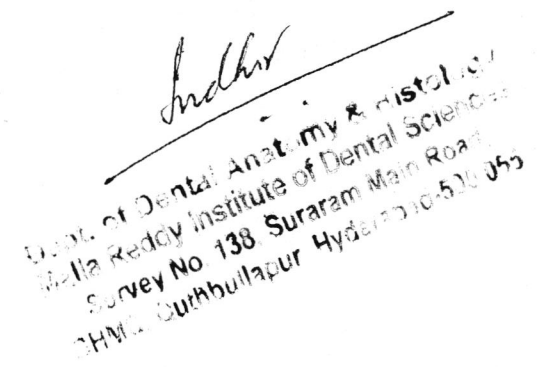 Sudhir
Dept. of Dental Anatomy & Histology
Malla Reddy Institute of Dental Sciences
Survey No. 138, Suraram Main Road
GHMC, Quthbullapur Hyderabad-500 055